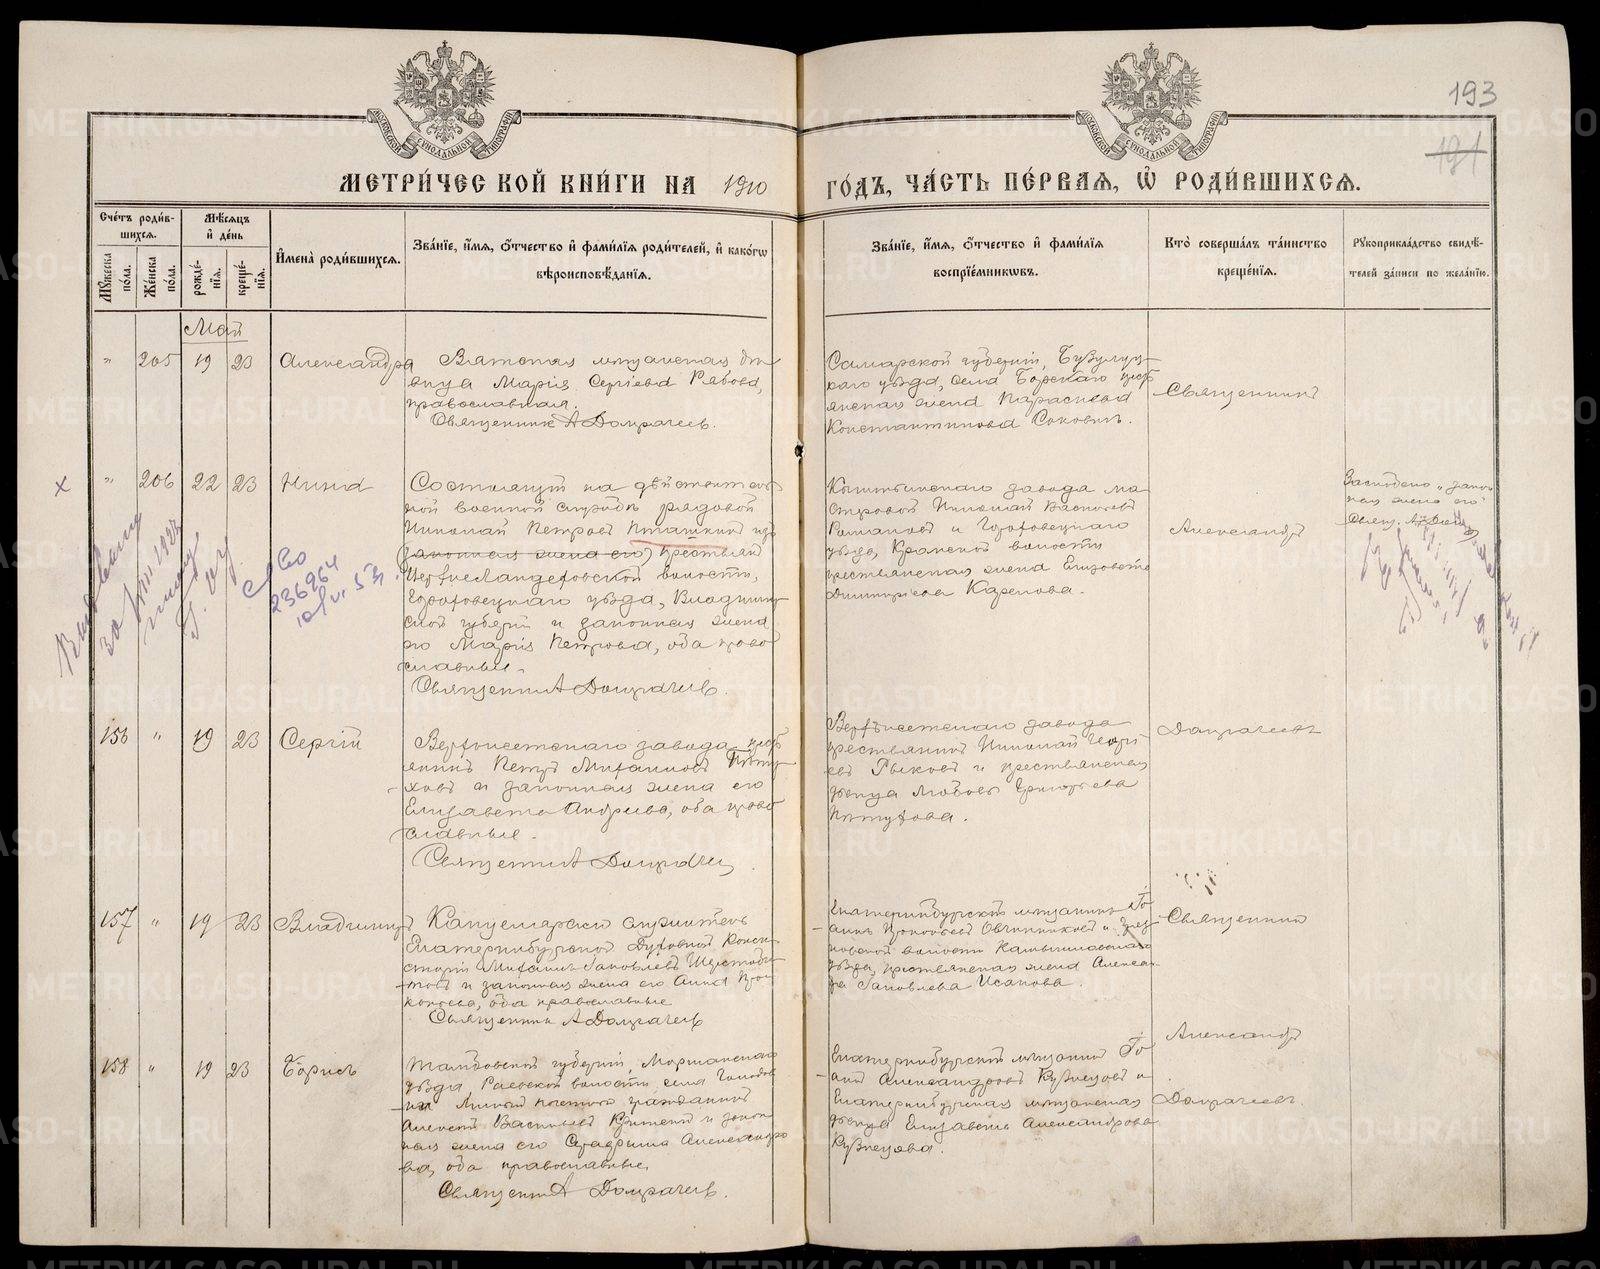 193
191
МОСКОВСКОЙ СѴНОДАЛЬНОЙ ТИПОГРАФІИ
МОСКОВСКОЙ СѴНОДАЛЬНОЙ ТИПОГРАФІИ
МЕТРИ́ЧЕСКОЙ КНИ́ГИ НА 1910 ГО́ДЪ, ЧА́СТЬ ПЕ́РВАЯ, Ѿ РОДИ́ВШИХСЯ.
Сче́тъ роди́в-
шихся.
Мꙋжеска по́ла.
Же́нска по́ла.
Мѣ́сяцъ
и҆ де́нь
рожде́-
нїя.
креще́-
нїя.
И҆мена̀ роди́вшихся.
Зва́нїе, и҆́мя, ѻ҆́тчество и҆ фами́лїя роди́телей, и҆ како́гѡ
вѣроисповѣ́данїя.
Зва́нїе, и҆́мя, ѻ҆́тчество и҆ фами́лїя
воспрїе́мникѡвъ.
Кто̀ соверша́лъ та́инство
креще́нїя.
Рꙋкоприкла́дство свидѣ́-
телей за́писи по жела́нїю.
Май
" 205 19 23 Александра
Вятская мѣщанская дѣ-
вица Марія Сергіева Рябова,
православная.
Священникъ А Домрачевъ.
Самарской губерніи, Бузулук-
каго уѣзда, села Борскаго крест
янская жена Параскева
Константинова Соковихъ.
Священникъ
х " 206 22 23 Нина
Состоящій на дѣйствитель
ной военной службѣ рядовой
Николай Петровъ Пташкинъ изъ
(законная жена его) крестьянъ
Верхнеландеховской волости,
Гороховецкаго уѣзда, Владимир
ской губерніи и законная жена
его Марія Петрова, оба право
славные.
Священник А Домрачевъ.
236964
Кыштымскаго завода ма-
стеровой Николай Васильевъ
Романовъ и Гороховецкаго
уѣзда, волости
крестьянская жена Елизавета
Димитріева Карепова.
Александръ
Зачеркнуто "закон
ная жена его"
156 " 19 23 Сергій
Верхисетскаго завода крест
янинъ Петръ Михаиловъ Пѣту-
ховъ и законная жена его
Елизавета Андреева, оба право
славные.
Священник А Домрачевъ
Верхъисетскаго завода
крестьянинъ Николай Георгі-
евъ Рыковъ и крестьянская
дѣвица Любовь Григорьева
Пѣтухова.
Домрачевъ
157 " 19 23 Владимиръ
Канцелярскій служитель
Екатеринбургской Духовной Конси
сторіи Михаилъ Іаковлевъ
и законная жена его Анна Про-
копьева, оба православные
Священник А Домрачевъ
Екатеринбургскій мѣщанинъ Іо-
аннъ Прокопьевъ Овчинниковъ и
волости Камышловскаго
уѣзда, крестьянская жена Алексан-
дра Іаковлева Исакова.
Священникъ
158 " 19 23 Борисъ
Тамбовской губерніи, Моршанскаго
уѣзда, Раевской волости села
личный почетный гражданинъ
Алексѣй Васильевъ и закон
ная жена его Серафима Александро
ва, оба православные.
Священник А Домрачевъ.
Екатеринбургскій мѣщанинъ Іо-
аннъ Александровъ Кузнецовъ и
Екатеринбургская мѣщанская
дѣвица Елизавета Александрова
Кузнецова.
Александръ
Домрачевъ.
METRIKI.GASO-URAL.RU